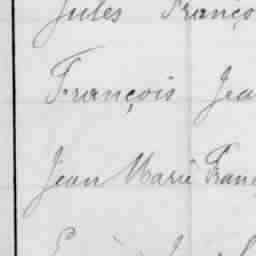 Jules Franço
François Jea
Jean Marie Franç